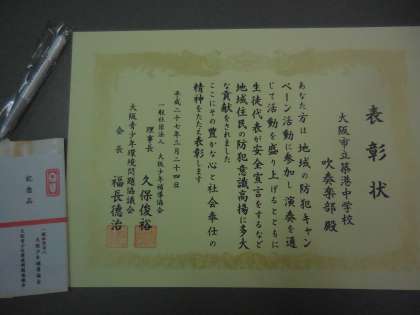 表彰状
大阪市立築港中学校
吹奏楽部 殿
あなた方は 地域の防犯キャン
ペーン活動に参加し 演奏を通
じて活動を盛り上げるとともに
生徒代表が安全宣言をするなど
地域住民の防犯意識高揚に多大
な貢献をされました
ここにその豊かな心と社会奉仕の
精神をたたえ表彰します
平成二十七年三月二十四日
一般社団法人 大阪少年補導協会
理事長 久保俊裕
大阪青少年環境問題協議会
会長 福長徳治
記念品
一般社団法人
大阪少年補導協会
大阪青少年環境問題協議会